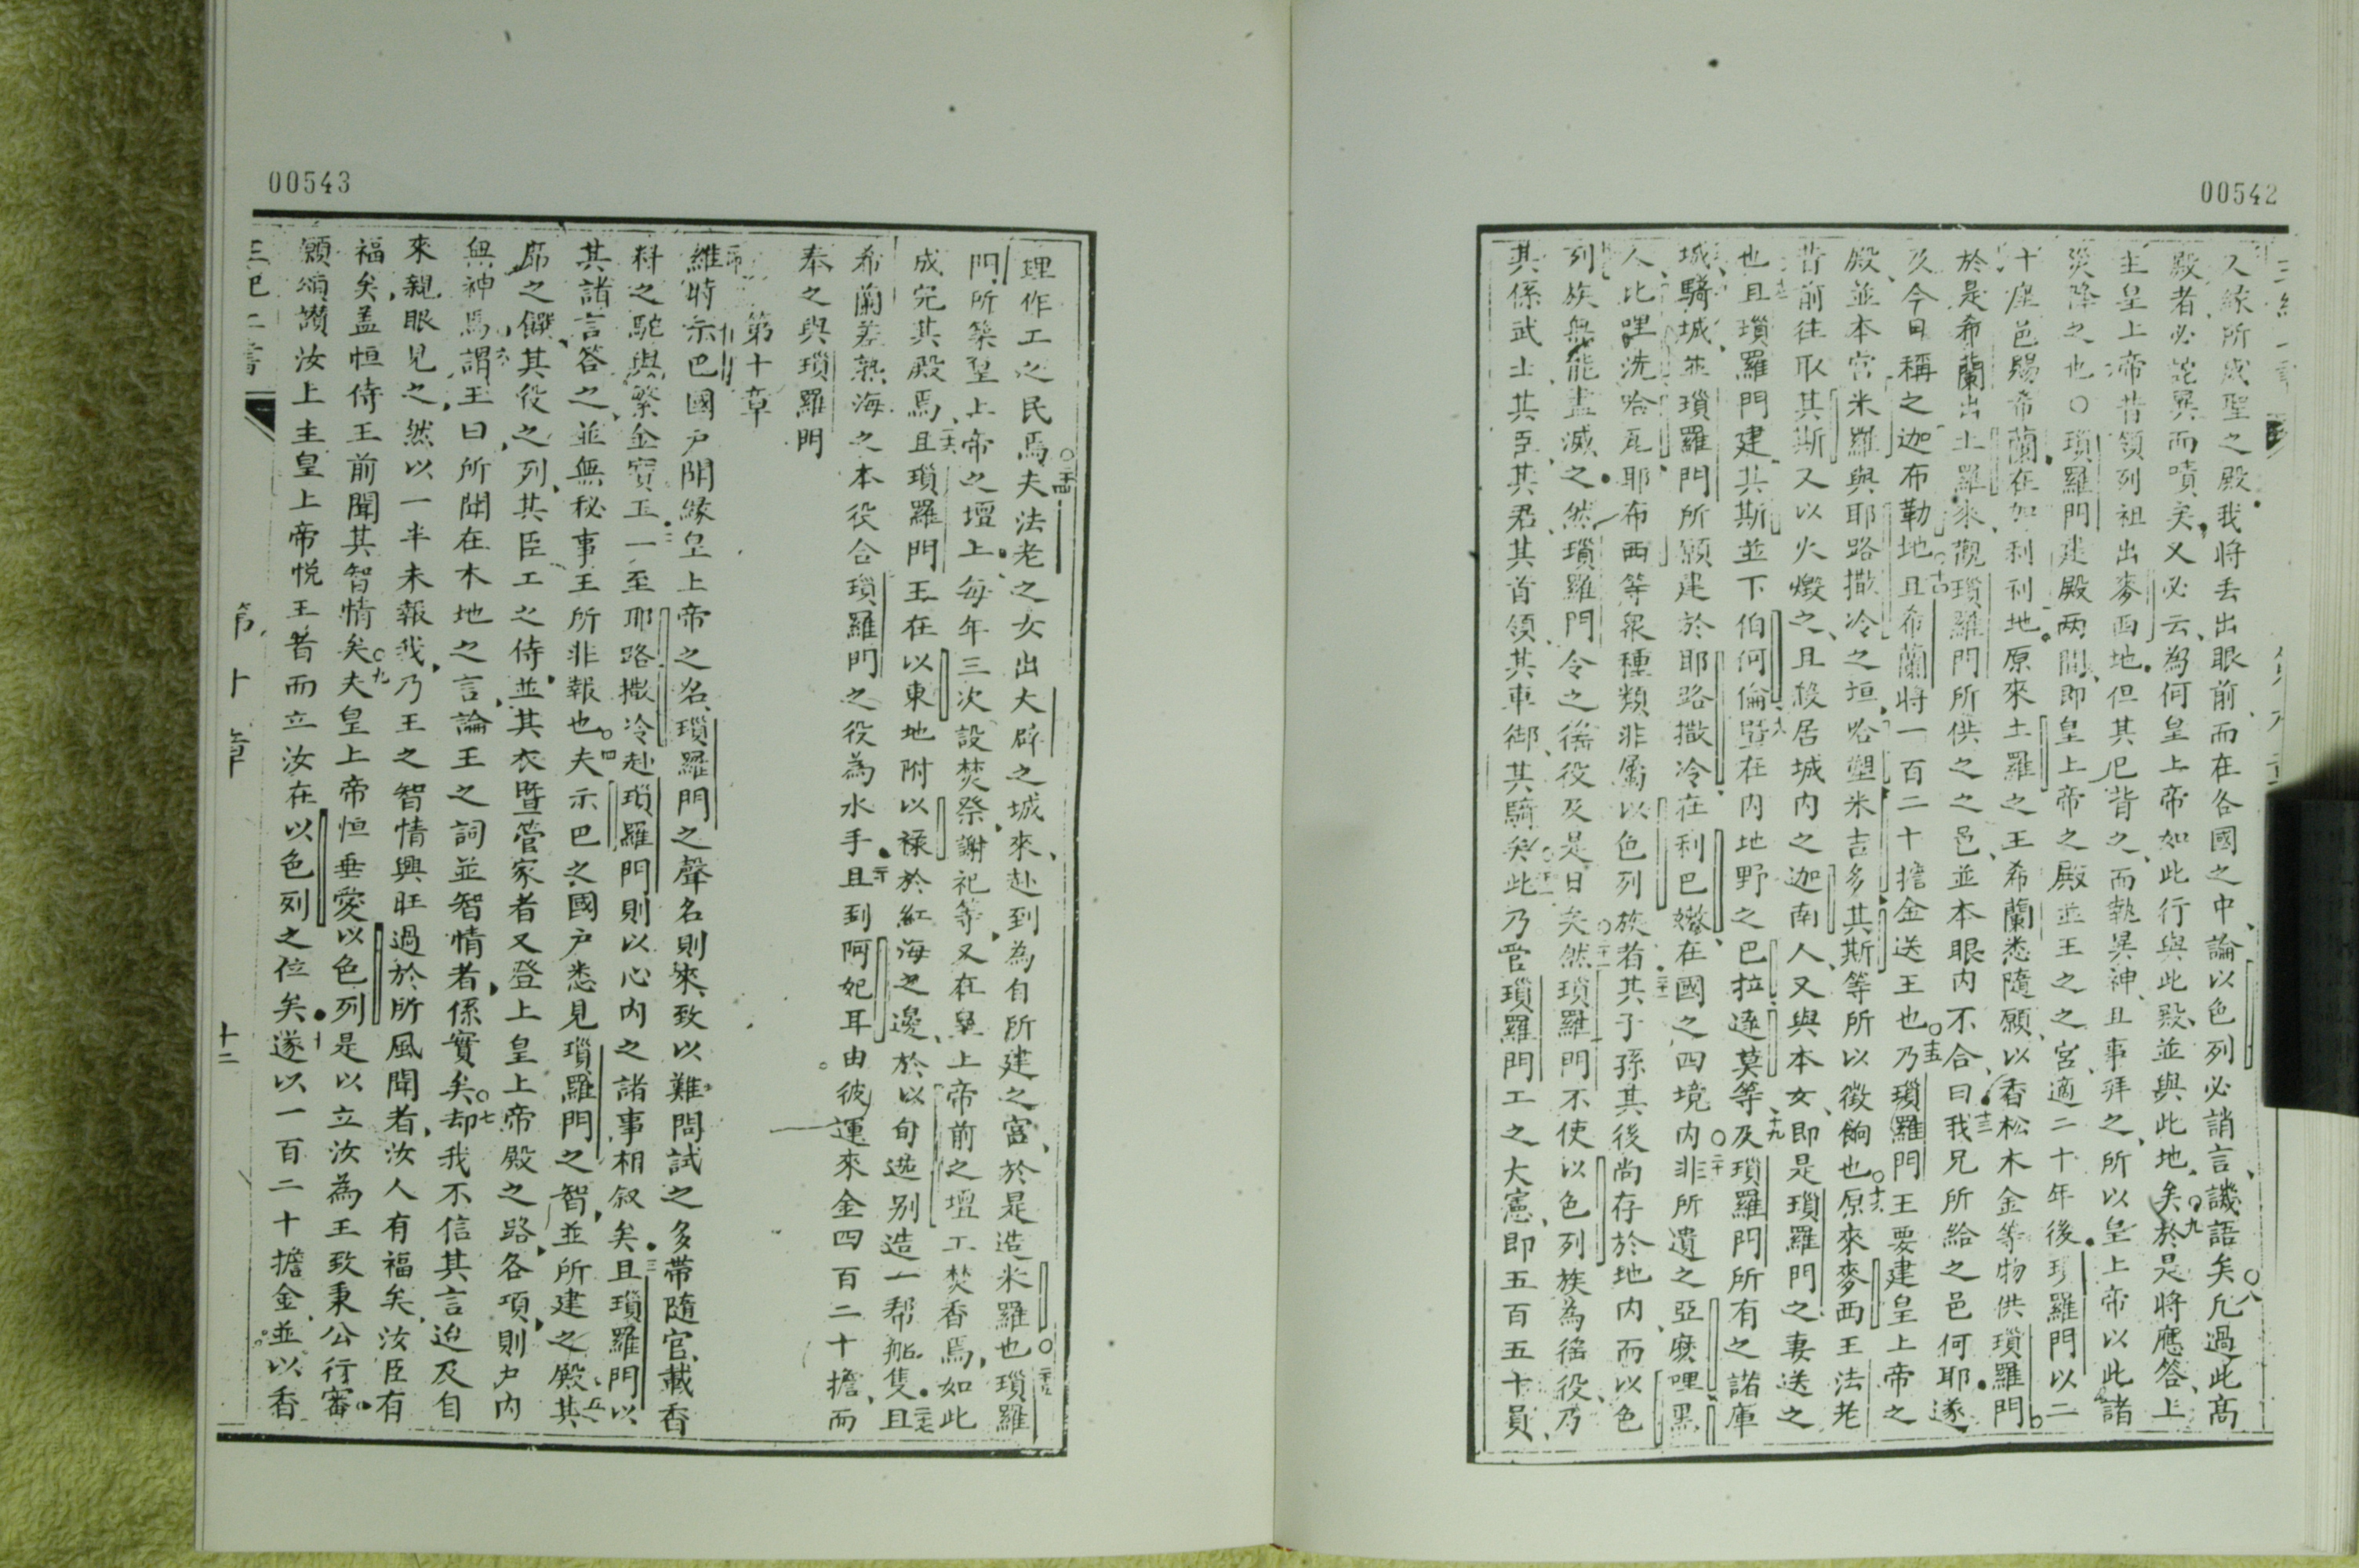 00542
又緣所成聖之殿我將丟出眼前而在各國之中論以色列必誚言譏語矣○八凡過此高
殿者必詫異而嘖矣又必云為何皇上帝如此行與此殿並與此地矣○九於是將應答上
主皇上帝昔領列祖出麥西地但其已背之而執異神且事拜之所以皇上帝以此諸
災降之也○瑣羅門建殿两間即皇上帝之殿並王之之宮適二十年後瑣羅門以二
十座邑賜希蘭在加利利地原來土羅之王希蘭悉隨願以香松木金等物供瑣羅門
於是希蘭出土羅來觀瑣羅門所供之之邑並本眼内不合十三曰我兄所給之邑何耶遂
及今日稱之迦布勒地○十四且希蘭將一百二十擔金送王也○十五乃瑣羅門王要建皇上帝之
殿並本宮米羅與耶路撒冷之垣哈塑米吉多其斯等所以徵餉也○十六原來麥西王法老
昔前往取其斯又以火燬之且殺居城内之迦南人又與本女即是瑣羅門之妻送之
也且瑣羅門建其斯並下伯何倫暨在内地野之巴拉達莫等十九及瑣羅門所有之諾庫
城騎城並瑣羅門所願建於耶路撒冷在利巴嫩在國之四境内○二十非所遺之亞麽哩黑
人比哩洗哈瓦耶布西等衆種類非屬以色列族者二十一其子孫其後尚存於地内而以色
列族無能盡滅之然瑣羅門令之徭役及是日矣○二十二然瑣羅門不使以色列族為徭役乃
其係武士其臣其君其首領其車御其騎矣此乃管瑣羅門工之大憲即五百五十員
00543
理作工之民焉○二十四夫法老之女出大辟之城來赴到為自所建之宮於是造米羅也○二十五瑣羅
門所築皇上帝之壇上每年三次設焚祭謝祀等又在皇上帝前之壇工焚香焉如此
成完其殿焉二十六且瑣羅門王在以東地附以祿於紅海之邊於以旬造别造一帮船隻二十七且
希蘭差熟海之本役合瑣羅門之役為水手二十八且到阿妃耳由彼運來金四百二十擔而
奉之與瑣羅門
第十章
維時示巴國户聞緣皇上帝之名瑣羅門之聲名則來致以難問試之多帶隨官載香
料之駝與繁金寳玉二一至耶路撒冷赴瑣羅門則以心内之諸事相叙矣三且瑣羅門以
其諸言答之並無秘事王所非報也○四夫示巴之國户悉見瑣羅門之智並所建之殿五其
席之饌其役之列其臣工之侍並其衣暨管家者又登上皇上帝殿之路各項則户内
無神焉六謂王曰所聞在本地之言論王之詞並智情者係實矣○七却我不信其言迨及自
來親眼見之然以一半未報我乃王之智情興旺過於所風聞者汝人有福矣汝臣有
福矣盖恒侍王前聞其智情矣○九夫皇上帝恒垂愛以色列是以立汝為王致秉公行審
願頌讃汝上主皇上帝悦王者而立汝在以色列之位矣十遂以一百二十擔金並以香
第十章
十二